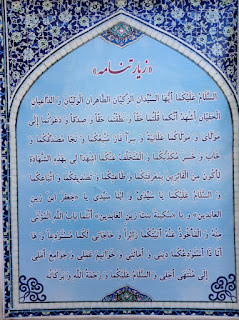 «زیارتنامه»
السَّلامُ عَلَیْکُما أَیُّهَا السَّیِّدانِ الزَّکِیّانِ الطّاهِرانِ الْوَلِیّانِ وَ الدّاعِیانِ
الْحَفِیّانِ أَشْهَدُ أَنَّکُما قُلْتُما حَقّاً وَ نَطَقْتُما حَقّاً وَ صِدْقاً وَ دَعَوْتُما إِلی
مَوْلایَ وَ مَوْلاکُما عَلانِیَةً وَ سِرّاً فازَ مُتَّبِعُکُما وَ نَجا مُصَدِّقُکُما وَ
خابَ وَ خَسِرَ مُکَذِّبُکُما وَ الْمُتَخَلِّفُ عَنْکُما اِشْهَدا لی بِهذِهِ الشَّهادَةِ
لِأَکُونَ مِنَ الْفائِزینَ بِمَعْرِفَتِکُما وَ طاعَتِکُما وَ تَصْدیقِکُما وَ اتِّباعِکُما
وَ السَّلامُ عَلَیْکُما یا سَیِّدَیَّ وَ ابْنا سَیِّدی یا «جعفر ابن زین
العابدین» و یا «سکینة بنت زین العابدین» أَنْتُما بابُ اللهِ الْمُؤْتی
مِنْهُ وَ الْمَأْخُوذُ عَنْهُ أَتَیْتُکُما زائِراً وَ حاجاتی لَکُما مُسْتَوْدِعاً وَ ها
أَنَا ذا أَسْتَوْدِعُکُما دینی وَ أَمانَتی وَ خَواتیمَ عَمَلی وَ جَوامِعَ أَمَلی
إِلی مُنْتَهی أَجَلی وَ السَّلامُ عَلَیْکُما وَ رَحْمَةُ اللهِ وَ بَرَکاتُهُ